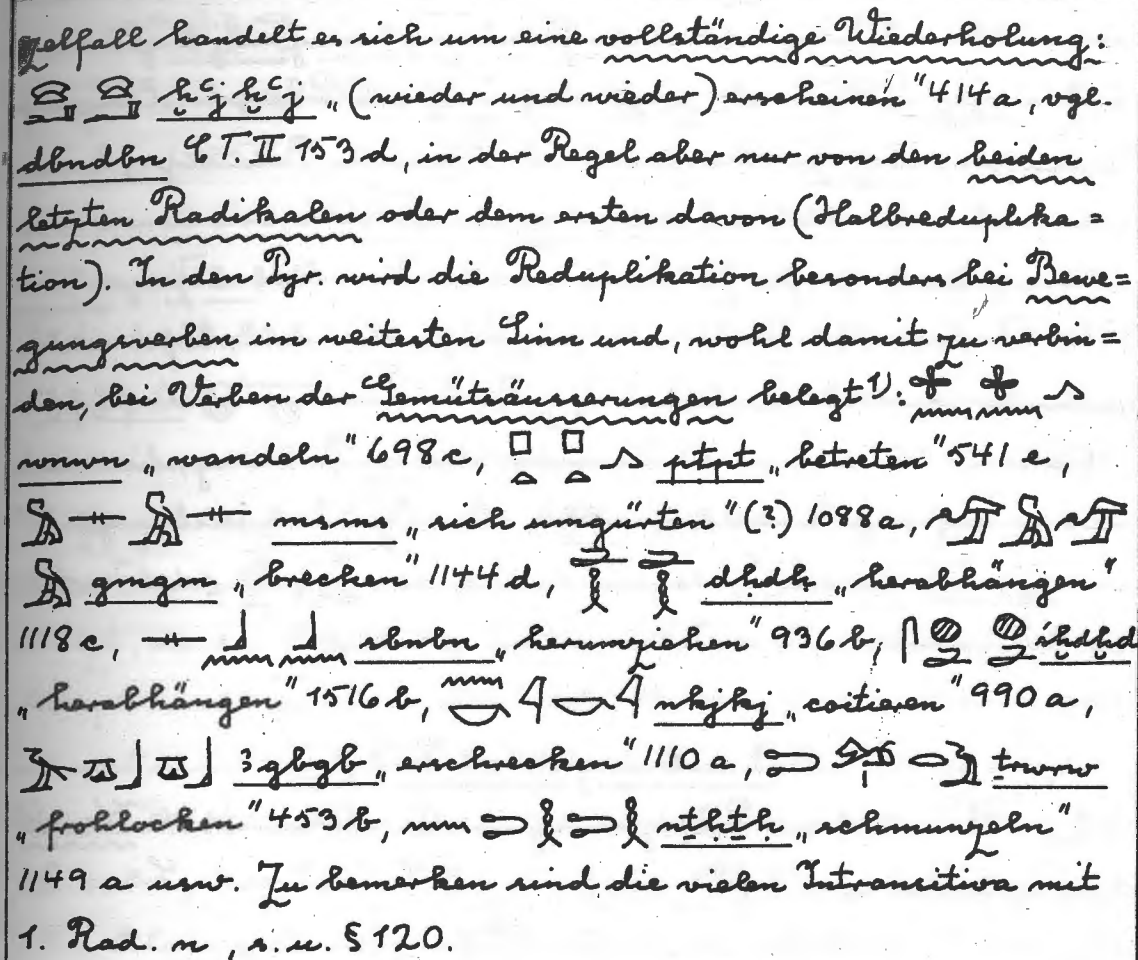 zelfall handelt es sich um eine vollständige Wiederholung:
𓈍𓂝 𓈍𓂝 ḫꜥj ḫꜥj „(wieder und wieder) erscheinen" 414a, vgl.
dbndbn CT. II 153 d, in der Regel aber nur von den beiden
letzten Radikalen oder dem ersten davon (Halbreduplika=
tion). In den Pyr. wird die Reduplikation besonders bei Bewe=
gungsverben im weitesten Sinn und, wohl damit zu verbin=
den, bei Verben der Gemütsäusserungen belegt 1): 𓇬𓈖𓇬𓈖𓂻
wnwn „wandeln" 698 c, 𓊪𓏏𓊪𓏏𓂻 ptpt „betreten" 541 e,
𓅓𓊃𓅓𓊃 msms „sich umgürten" (?) 1088 a, 𓅠𓅓𓅠
𓅓 gmgm „brechen" 1144 d, 𓂧𓎛𓂧𓎛 dḥdḥ „herabhängen"
1118 c, 𓊃𓃀𓈖𓃀𓈖 sbnbn „herumziehen" 936 b, 𓋴𓐍𓂧𓐍𓂧 śḫdḫd
„herabhängen" 1516 b, 𓈖𓎡𓇋𓎡𓇋 nkjkj „coitieren" 990 a,
𓄿𓎼𓃀𓎼𓃀 ꜣgbgb „erschrecken" 1110 a, 𓍿𓂋𓅱 ṯrwrw
„frohlocken" 453 b, 𓈖𓍿𓎛𓍿𓎛 nṯḥṯḥ „schmunzeln"
1149 a usw. Zu bemerken sind die vielen Intransitiva mit
1. Rad. n, s. u. § 120.